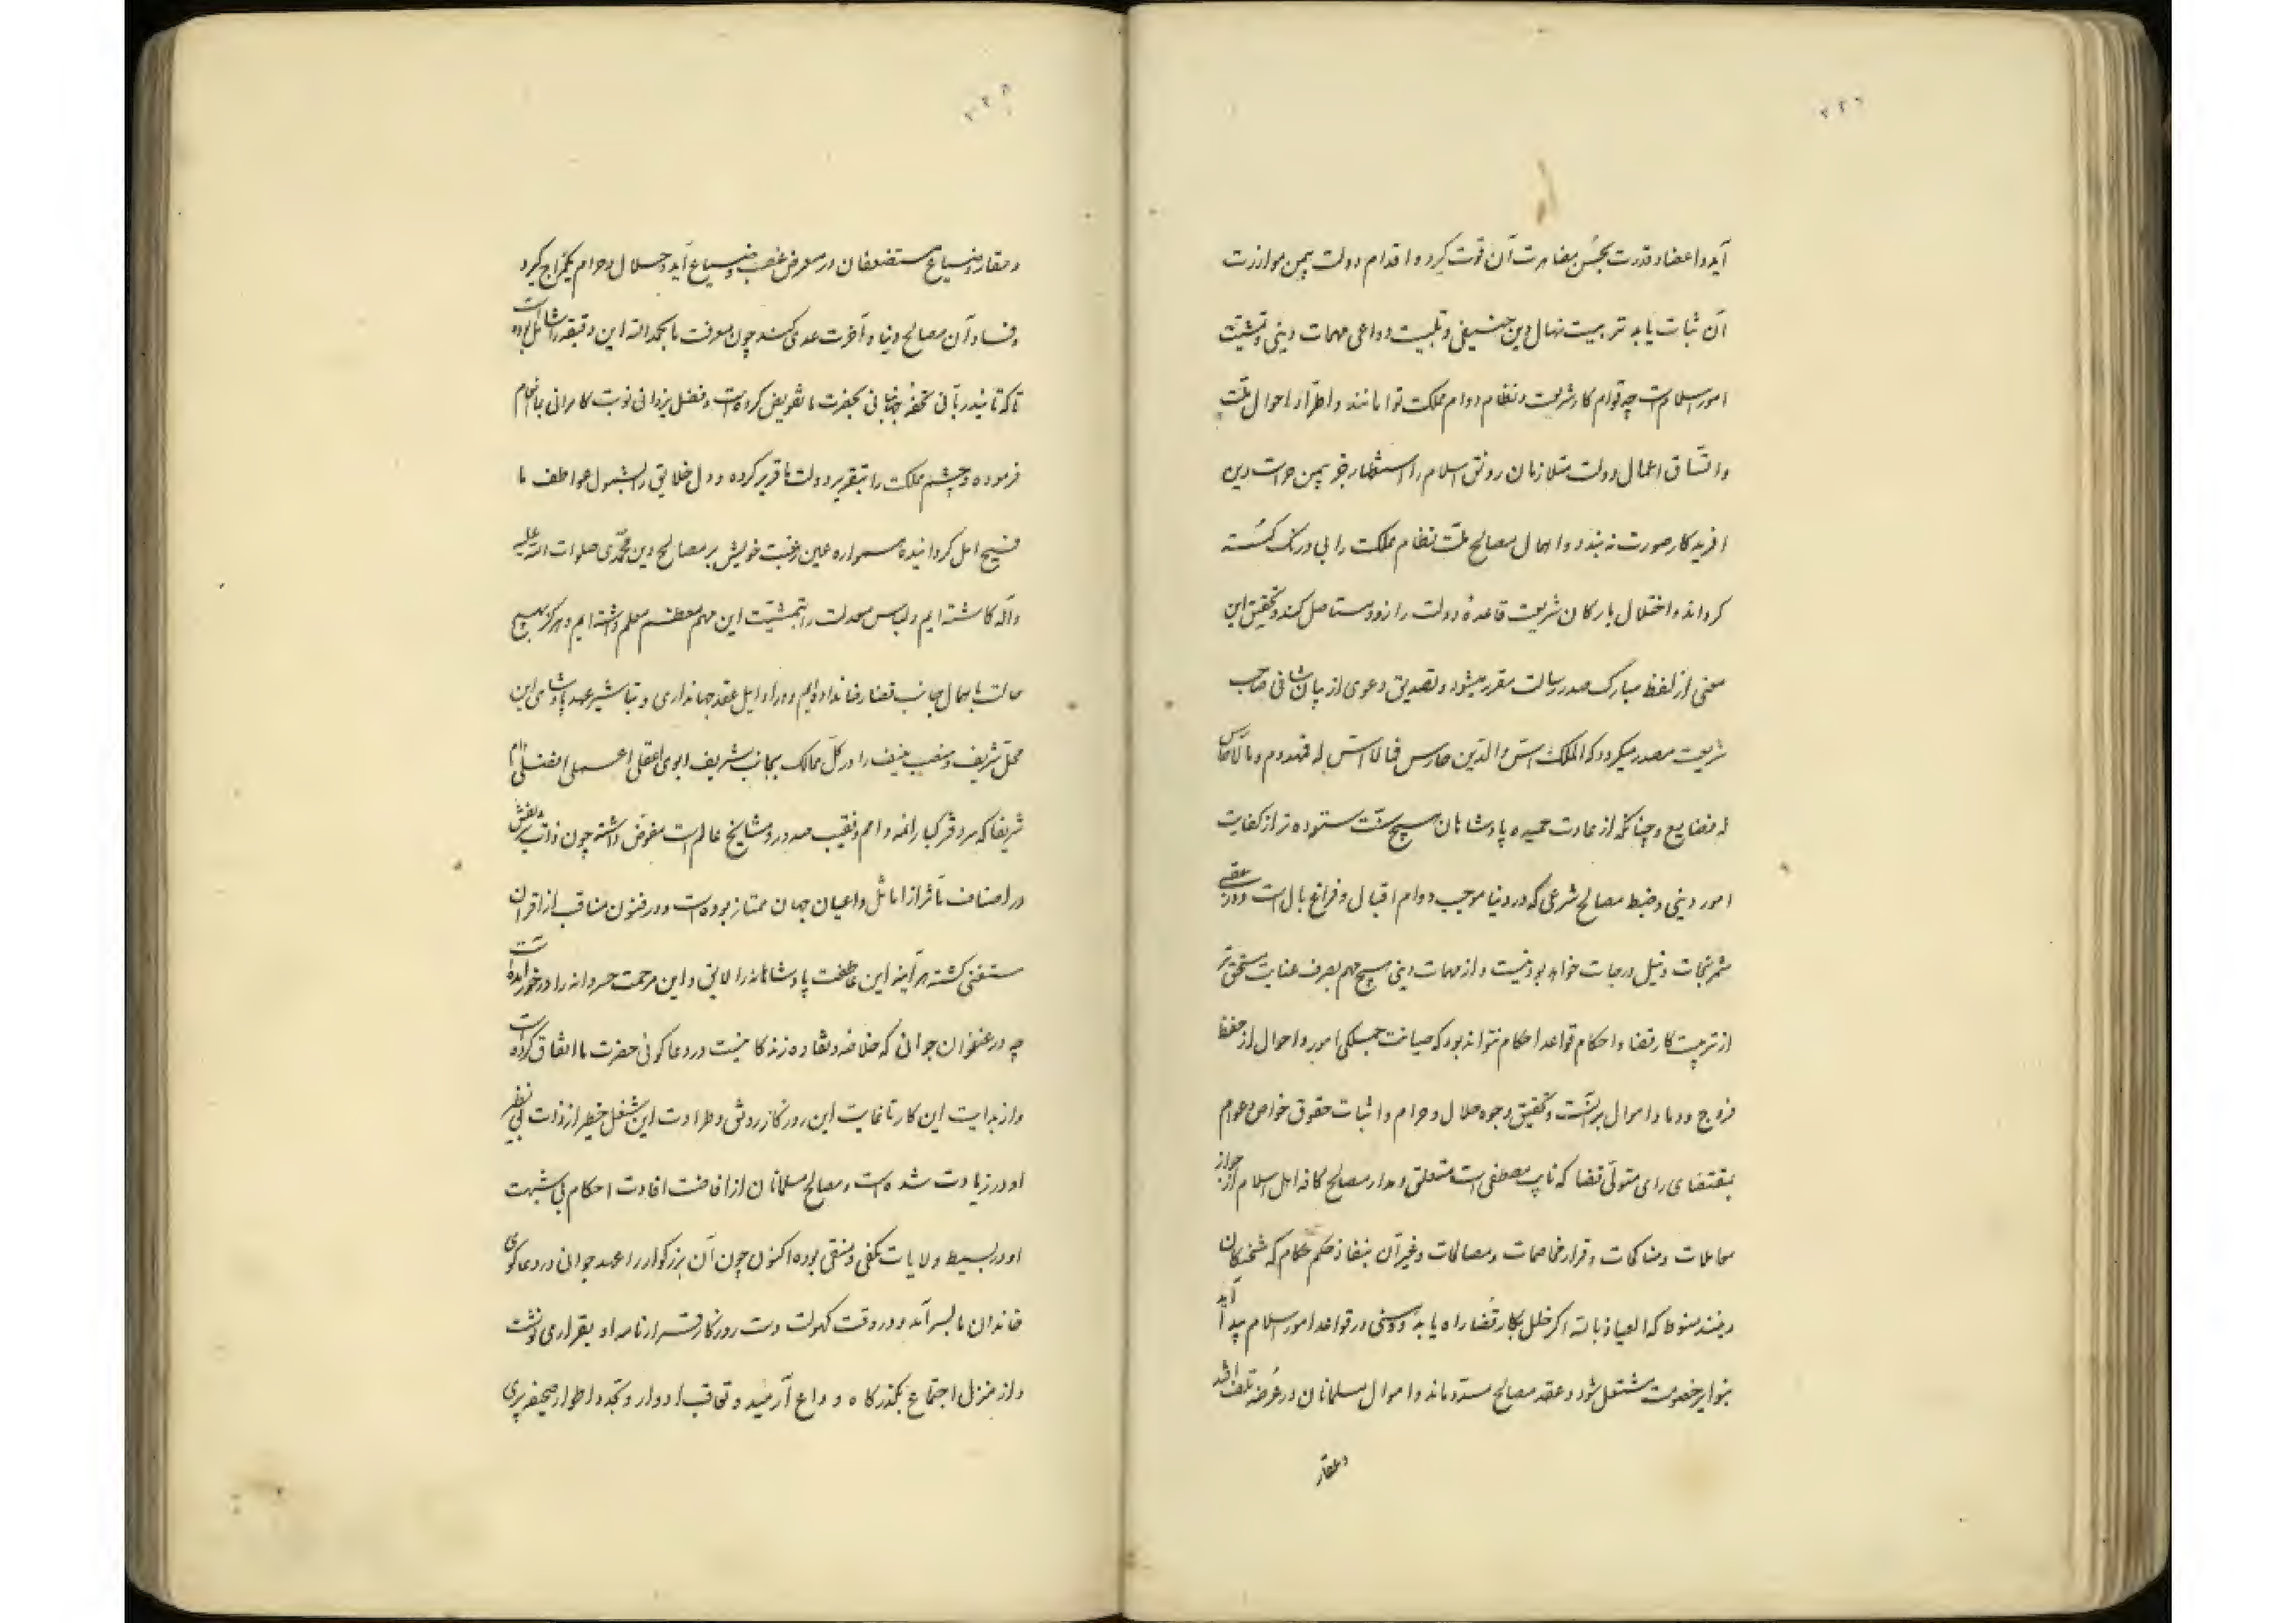 آید و اعضاد قدرت بحسن مضافرت آن قوت گیرد و اقدام دولت بیمن موازرت
آن ثبات یابد تربیت نهال دین حنیفی و تلبیت دواعی مهمات دینی و تمشیت
امور اسلامست چه قوام کار شریعت و نظام دوام مملکت توامانند و اطراد احوال ملت
و اتساق اعمال دولت متلازمان رونق اسلام را استظهار جز بیمن حراست دین
افریدکار صورت نه بندد و اهمال مصالح ملت نظام مملکت را بی درنک کسسته
کرداند و اختلال بارکان شریعت قاعده دولت را زود مستاصل کند و تحقیق این
معنی از لفظ مبارک صدر رسالت مقرر میشود و تصدیق دعوی از بیان شافی صاحب
شریعت مصدر میکردد که الملک اس والدین حارس فما لا اس له فمهدوم و ما لا حارس
له فضایع و چنانکه از عادت حمیده پادشاهان هیچ سنت ستوده تر از کفایت
امور دینی و ضبط مصالح شرعی که در دنیا موجب دوام اقبال و فراغ بال است و در عقبی
مثمر نجات و نیل درجات خواهد بود نیست و از مهمات دینی هیچ مهم بصرف عنایت مستحق تر
از ترتیب کار قضا و احکام قواعد احکام نتواند بود که صیانت جملکی امور و احوال از حفظ
فروج و دما و اموال بر سنت و تحقیق وجوه حلال و حرام و اثبات حقوق خواص و عوام
بمقتضای رای متولی قضا که نایب مصطفی است متعلق و مدار مصالح کافه اهل اسلام از جواز
معاملات و مناکحات و قرار مخاصمات و مصالحات و غیر آن بنفاذ حکم حکام که شحنکان
دینند منوط که العیاذ بالله اکر خللی بکار قضا راه یابد و وهنی در قواعد امور اسلام پیدا آید
نوایر خصومت مشتعل شود و عقد مصالح مسترد ماند و اموال مسلمانان در عرضه تلف افتد
و عقار
و عقار و ضیاع مستضعفان در معرض غصب و ضیاع آید و حلال و حرام یک مزاج گیرد
و فساد آن مصالح دنیا و آخرت عدوی کند چون معرفت ما بحمدالله این دقیقه را شامل بوده است
تا که تایید ربانی تحفه جهانبانی بحضرت ما تفویض کرده است و فضل یزدانی نوبت کامرانی بما انعام
فرموده و چشم مملکت را بتقریر دولت ما قریر کرده و دل خلایق را بشمول عواطف ما
فسیح امل کردانیده همواره عین رغبت خویش بر مصالح دین محمدی صلوات الله علیه
و آله کاشته ایم و لباس معدلت را بتمشیت این مهم معظم معلم داشته ایم و هرکز بهیچ
حالت باهمال جانب قضا رضا نداده ایم و در اوایل عقد جهانداری و تباشیر عهد پادشاهی این
محل شریف و منصب منیف را در کل ممالک بجانب شریف ابوی اعقلی اعملی افضلی ادام
شریفا که سر دفتر کبار ائمه و امم و نقیب صدور و مشایخ عالمست مفوض داشته چون ذات بی نقش
در اصناف مآثر از اماثل و اعیان جهان ممتاز بوده است و در فنون مناقب از اقران
مستغنی کشته هر آینه این عاطفت پادشاهانه را لایق و این مرحمت خسروانه را در خور آمده است
چه در عنفوان جوانی که خلاصه و نقاوه زندکانیست در دعا کوئی حضرت ما انفاق کرده است
و از بدایت این کار تا غایت این روز کار رونق و طراوت این شغل خطیر از ذات بی نظیر
او در زیادت شده است و مصالح مسلمانان از افاضت افادت احکام بی شبهت
او در بسیط ولایات مکفی و منقی بوده اکنون چون آن بزرکوار را عهد جوانی در دعا کوی
خاندان ما بسر آمد و در وقت کهولت دست روزکار قرارنامه او بقراری نوشت
و از منزل اجتماع بگذرکاه وداع آرمید و تعاقب ادوار و تجدد اطوار صحیفه پیری